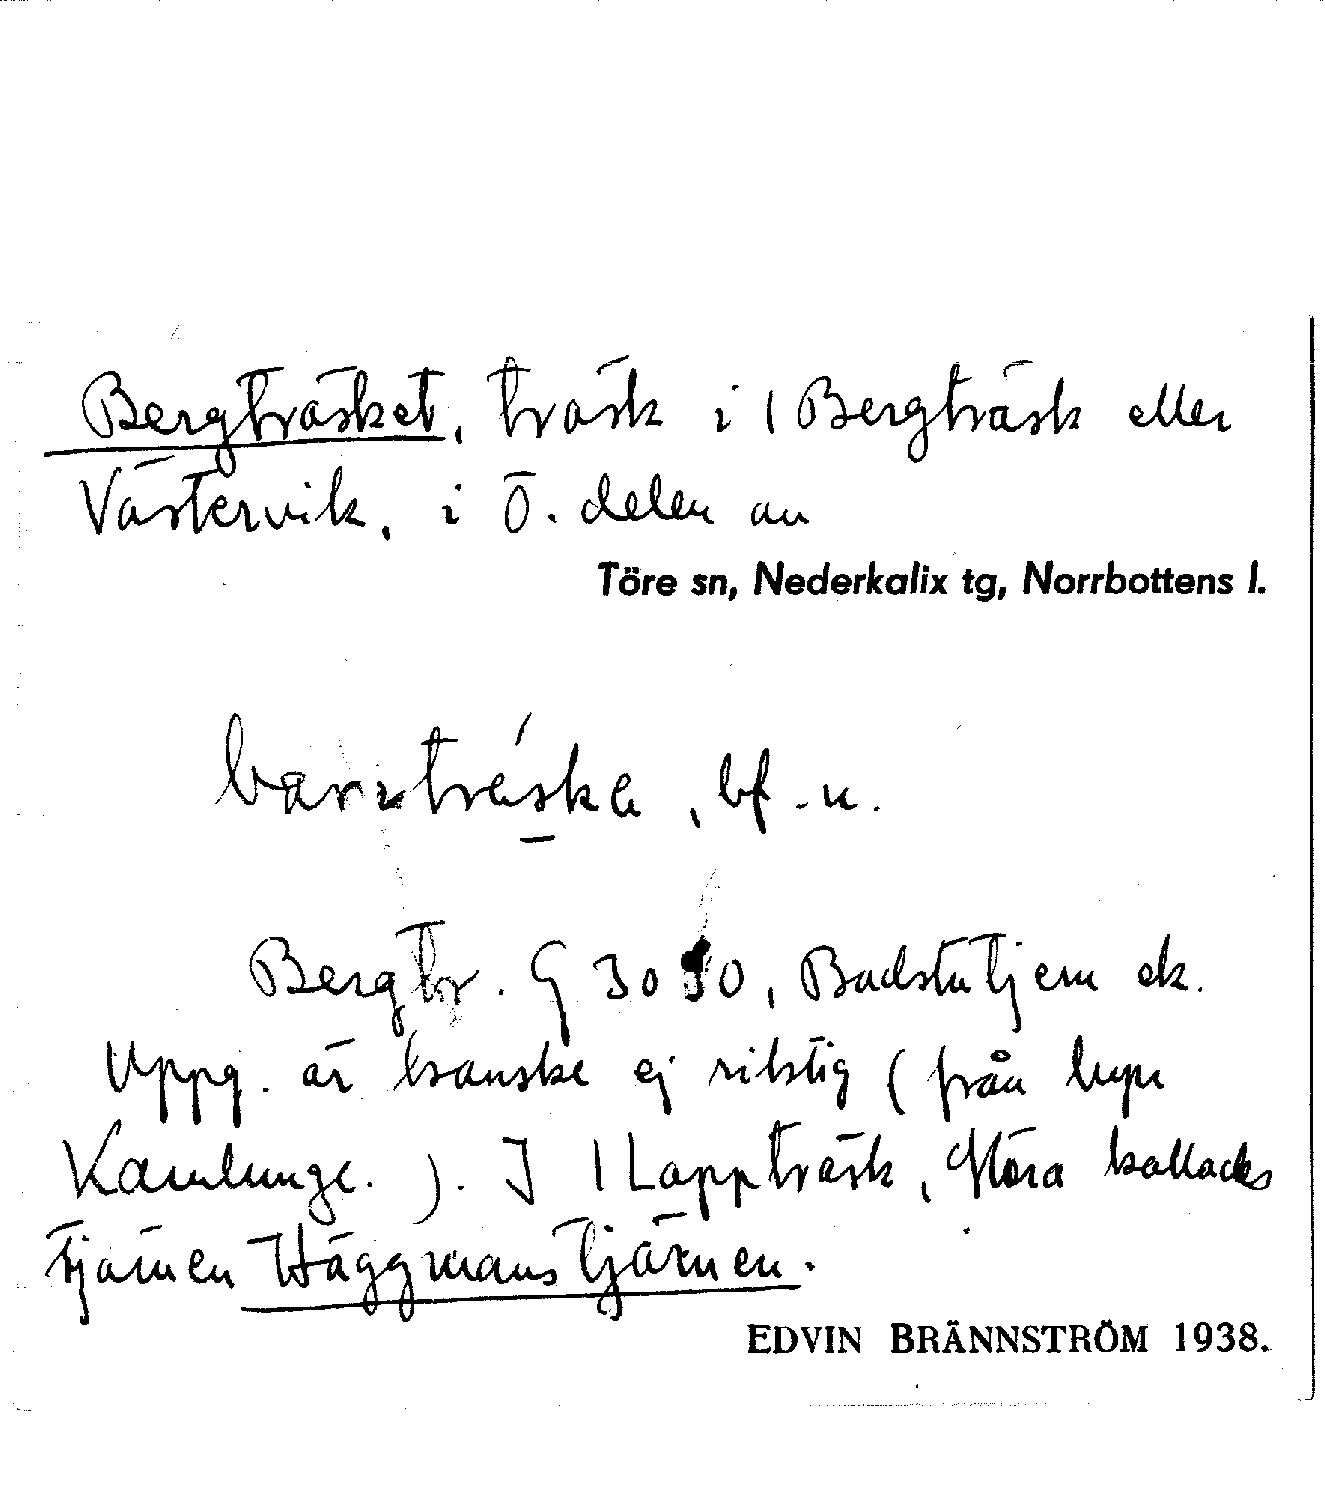 Bergträsket, träsk i l Bergträsk eller
Västervik, i ö. delen av
Töre sn, Nederkalix tg, Norrbottens l.
bf. n.
Bergtr. G 3030, Badstutjern ek.
Uppg. är kanske ej riktig (från byn
Kamlunge.). I l Lappträsk, Möra kallades
tjärnen Häggmanstjärnen.
EDVIN BRÄNNSTRÖM 1938.